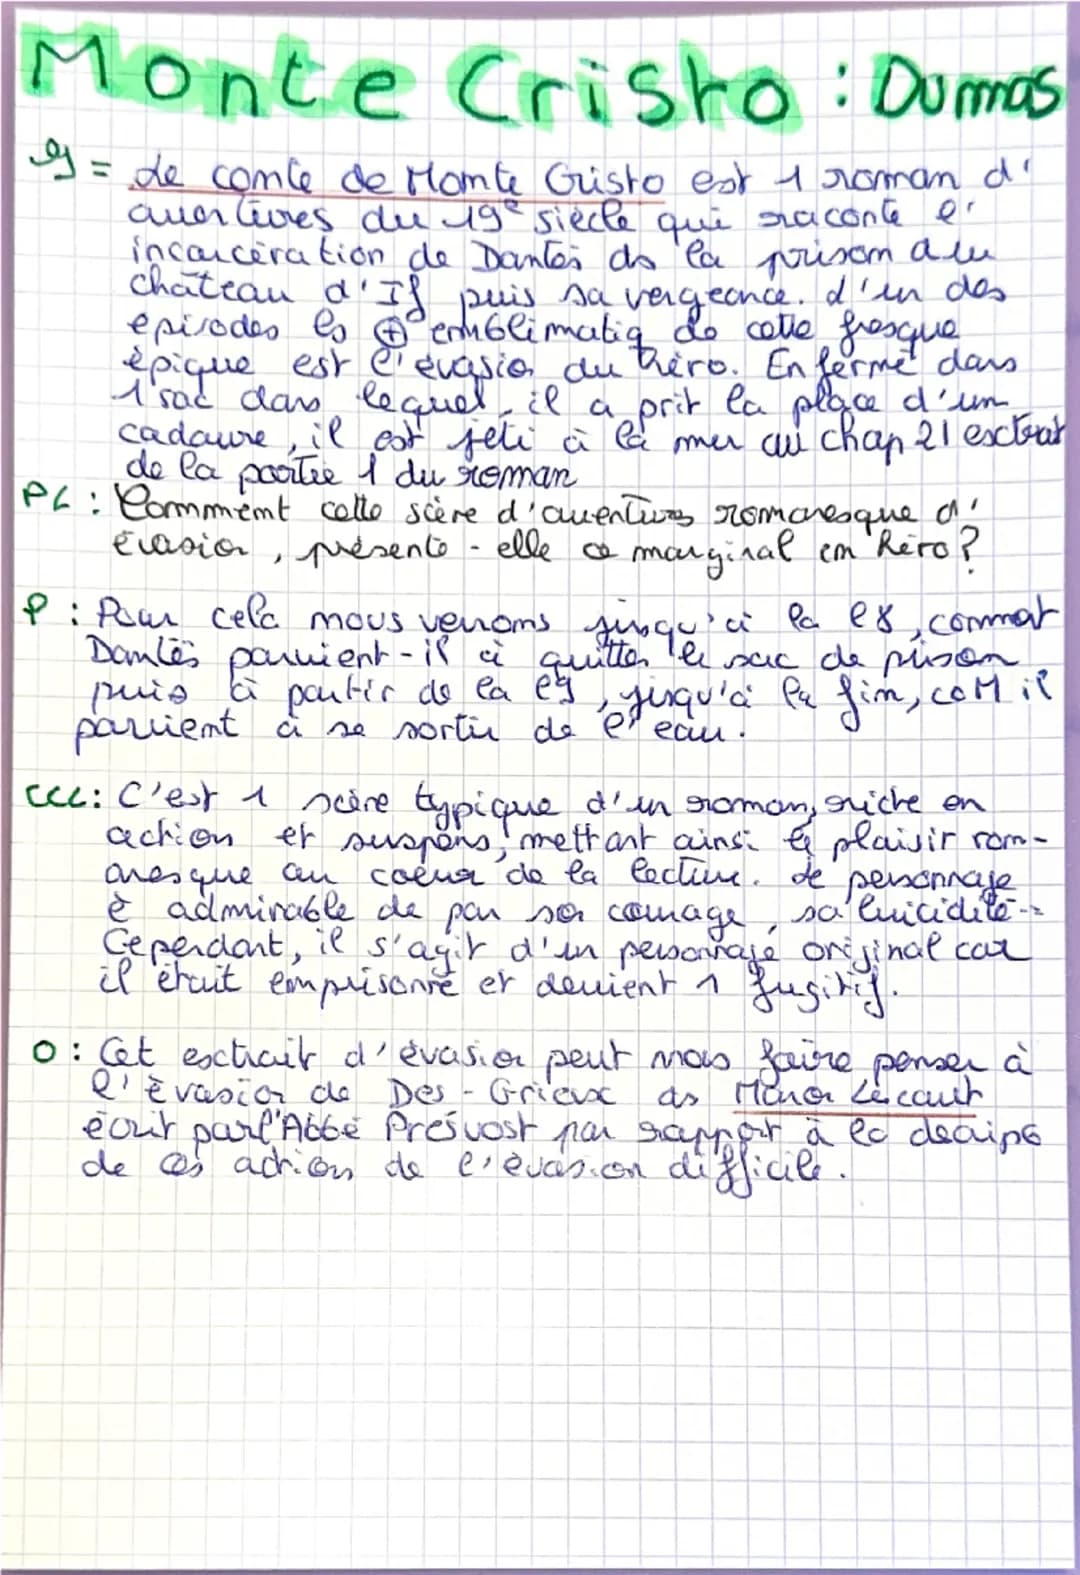 Monte Cristo : Dumas
= Le comte de Monte Cristo est 1 roman d'
aventures du 19e siècle qui raconte l'
incarcération de Dantès ds la prison du
château d'If puis sa vengeance. L'un des
épisodes ls ⊕ emblématiq de cette fresque
épique est l'évasion du héro. Enfermé dans
1 sac dans lequel il a prit la place d'un
cadavre, il est jeté à la mer au chap 21 extrait
de la partie 1 du roman
PL : Comment cette scène d'aventures romanesque d'
évasion, présente-elle ce marginal en héro ?
P : Pour cela nous verrons jusqu'à la l8, comment
Dantès parvient-il à quitter le sac de prison
puis à partir de la l9, jusqu'à la fin, coM il
parvient à se sortir de l'eau.
CCL: C'est 1 scène typique d'un roman, riche en
action et suspens, mettant ainsi le plaisir rom-
anesque au coeur de la lecture. Le personnage
è admirable de par son courage, sa lucidité...
Cependant, il s'agit d'un personnage original car
il était emprisonné et devient 1 fugitif.
O : Cet extrait d'évasion peut nous faire penser à
l'évasion de Des-Grieux ds Manon Lescaut
écrit par l'Abbé Prévost par rapport à la
de ces actions de l'évasion difficile.